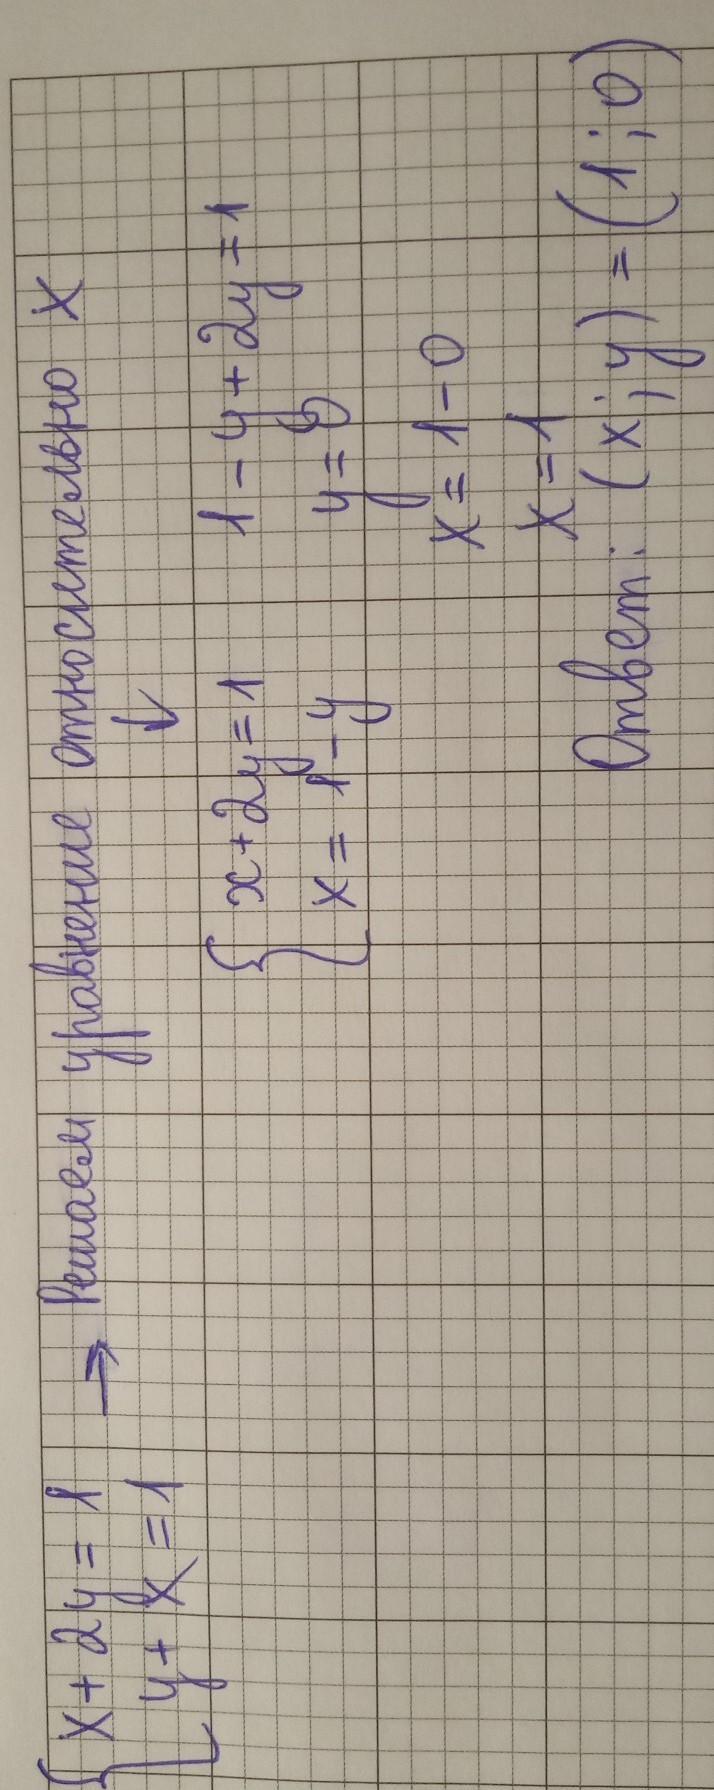 { x + 2y = 1 → Решаем уравнение относительно x
y + x = 1 ↓
{ x + 2y = 1 1 - y + 2y = 1
x = 1 - y y = 0
x = 1 - 0
x = 1
Ответ: (x; y) = (1; 0)